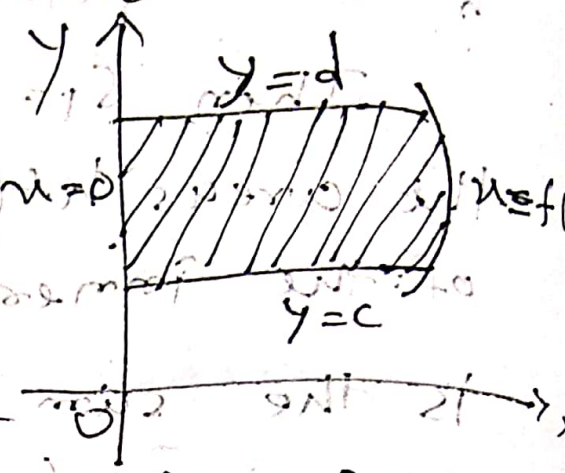 y
y = d
x = 0
x = f(
y = c
0